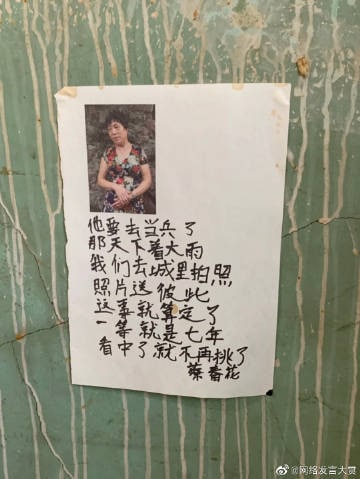 他要去当兵了
那天下着大雨
我们去城里拍照
照片送彼此
这事就算定了
一等就是七年
看中了就不再挑了
蔡春花
@网络发言大赏